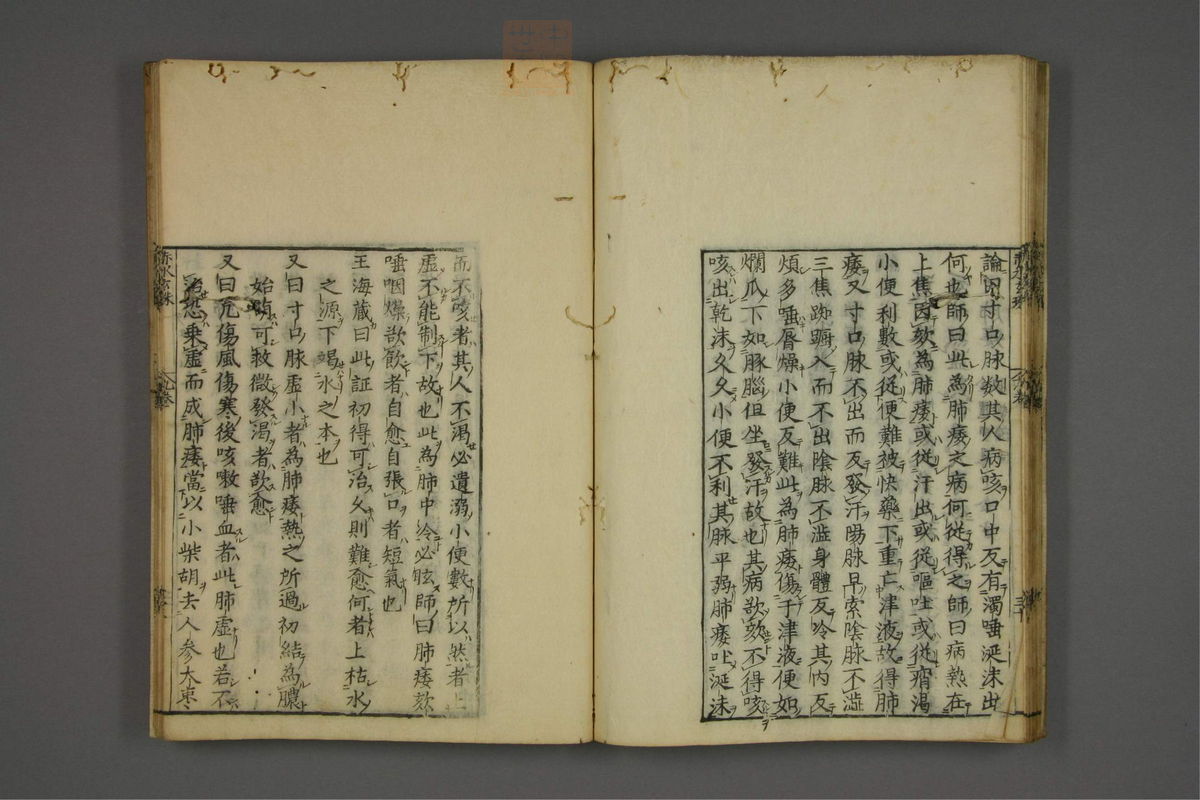 論曰寸口脉数其人病咳口中反有濁唾涎沫出
何也師曰此為肺痿之病何從得之師曰病熱在
上焦因欬為肺痿或從汗出或從嘔吐或從痟渴
小便利數或從便難被快藥下重亡津液故得肺
痿又寸口脉不出而反發汗陽脉早索陰脉不澁
三焦踟蹰入而不出陰脉不澁身體反冷其内反
煩多唾唇燥小便反難此為肺痿傷于津液便如
爛瓜下如豚腦但坐發汗故也其病欲欬不得咳
咳出乾沫久久小便不利其脉平弱肺痿吐涎沫
而不咳者其人不渴必遺溺小便數所以然者上
虚不能制下故也此為肺中冷必眩師曰肺痿欬
唾咽燥欲飲者自愈自張口者短氣也
王海藏曰此証初得可治久則難愈何者上枯水
之源下竭水之本也
又曰寸口脉虚小者為肺痿熱之所過初結為膿
始萌可救微發渴者欲愈
又曰凢傷風傷寒後咳嗽唾血者此肺虚也若不
治恐乗虚而成肺痿當以小柴胡去人参大棗